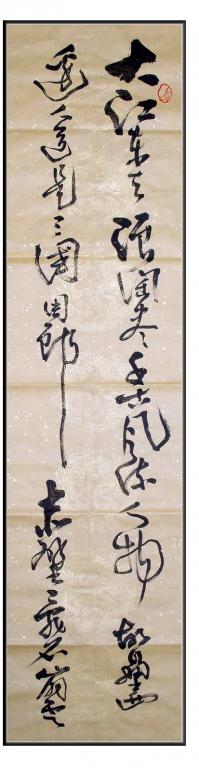 大江东去浪淘尽千古风流人物故垒西
边人道是三國周郎赤壁乱石崩雲